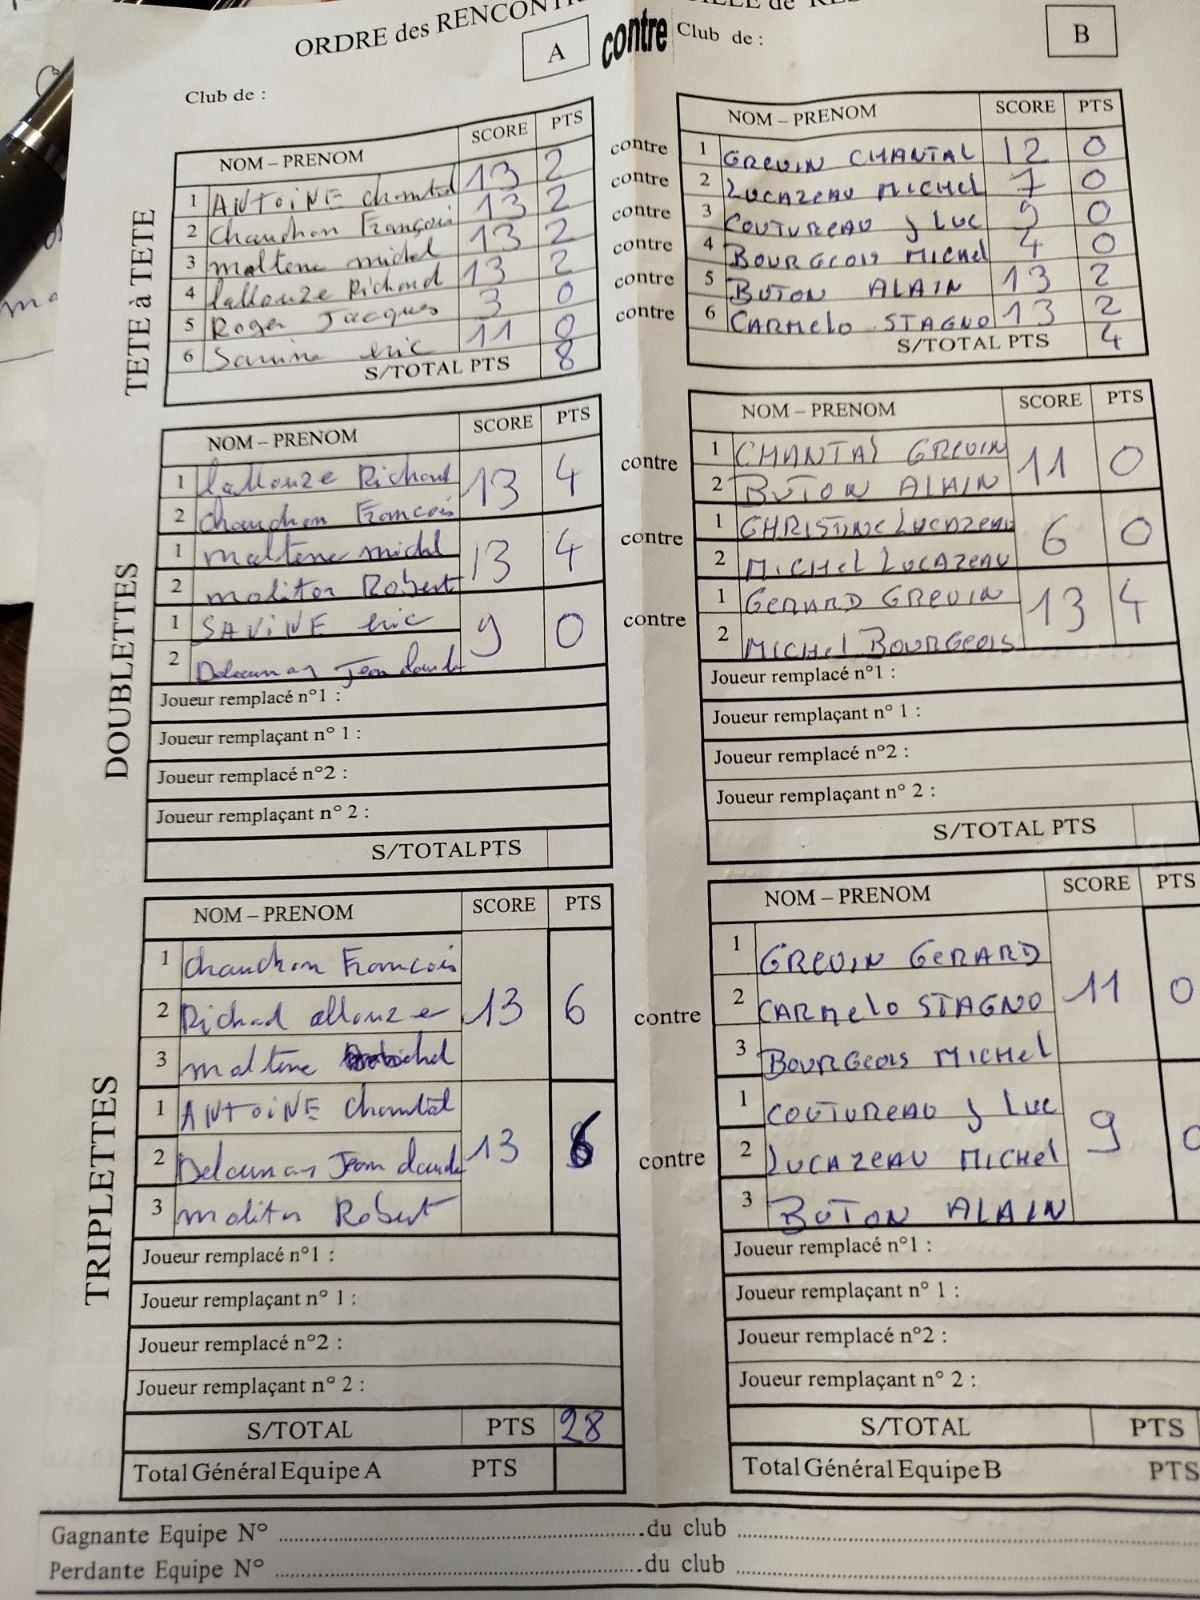 ORDRE des RENCONTR
A contre Club de : B
Club de :
TETE à TETE
NOM – PRENOM SCORE PTS
1 ANTOINE Chantal 13 2
2 Chauchon François 13 2
3 maltene michel 13 2
4 lallouze Richard 13 2
5 Roger Jacques 3 0
6 Savine eric 11 0
S/TOTAL PTS 8
contre
contre
contre
contre
contre
contre
NOM – PRENOM SCORE PTS
1 GREVIN CHANTAL 12 0
2 LUCAZEAU MICHEL 7 0
3 COUTUREAU J LUC 9 0
4 BOURGEOIS MICHEL 4 0
5 BUTON ALAIN 13 2
6 CARMELO STAGNO 13 2
S/TOTAL PTS 4
DOUBLETTES
NOM – PRENOM SCORE PTS
1 lallouze Richard 13 4
2 Chauchon François
1 maltene michel 13 4
2 molitor Robert
1 SAVINE eric 9 0
2 Delaunay Jean claude
Joueur remplacé n°1 :
Joueur remplaçant n° 1 :
Joueur remplacé n°2 :
Joueur remplaçant n° 2 :
S/TOTAL PTS
contre
contre
contre
NOM – PRENOM SCORE PTS
1 CHANTAL GREVIN 11 0
2 BUTON ALAIN
1 CHRISTINE LUCAZEAU 6 0
2 MICHEL LUCAZEAU
1 GERARD GREVIN 13 4
2 MICHEL BOURGEOIS
Joueur remplacé n°1 :
Joueur remplaçant n° 1 :
Joueur remplacé n°2 :
Joueur remplaçant n° 2 :
S/TOTAL PTS
TRIPLETTES
NOM – PRENOM SCORE PTS
1 Chauchon François
2 Richard allouze 13 6
3 maltene michel
1 ANTOINE Chantal
2 Delaunay Jean claude 13 6
3 molitor Robert
Joueur remplacé n°1 :
Joueur remplaçant n° 1 :
Joueur remplacé n°2 :
Joueur remplaçant n° 2 :
S/TOTAL PTS 28
Total Général Equipe A PTS
contre
contre
NOM – PRENOM SCORE PTS
1 GREVIN GERARD
2 CARMELO STAGNO 11 0
3 BOURGEOIS MICHEL
1 COUTUREAU J LUC
2 LUCAZEAU MICHEL 9 0
3 BUTON ALAIN
Joueur remplacé n°1 :
Joueur remplaçant n° 1 :
Joueur remplacé n°2 :
Joueur remplaçant n° 2 :
S/TOTAL PTS
Total Général Equipe B PTS
Gagnante Equipe N° ........ du club ........
Perdante Equipe N° ........ du club ........